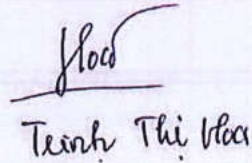 Hoa
Trinh Thị Hoa